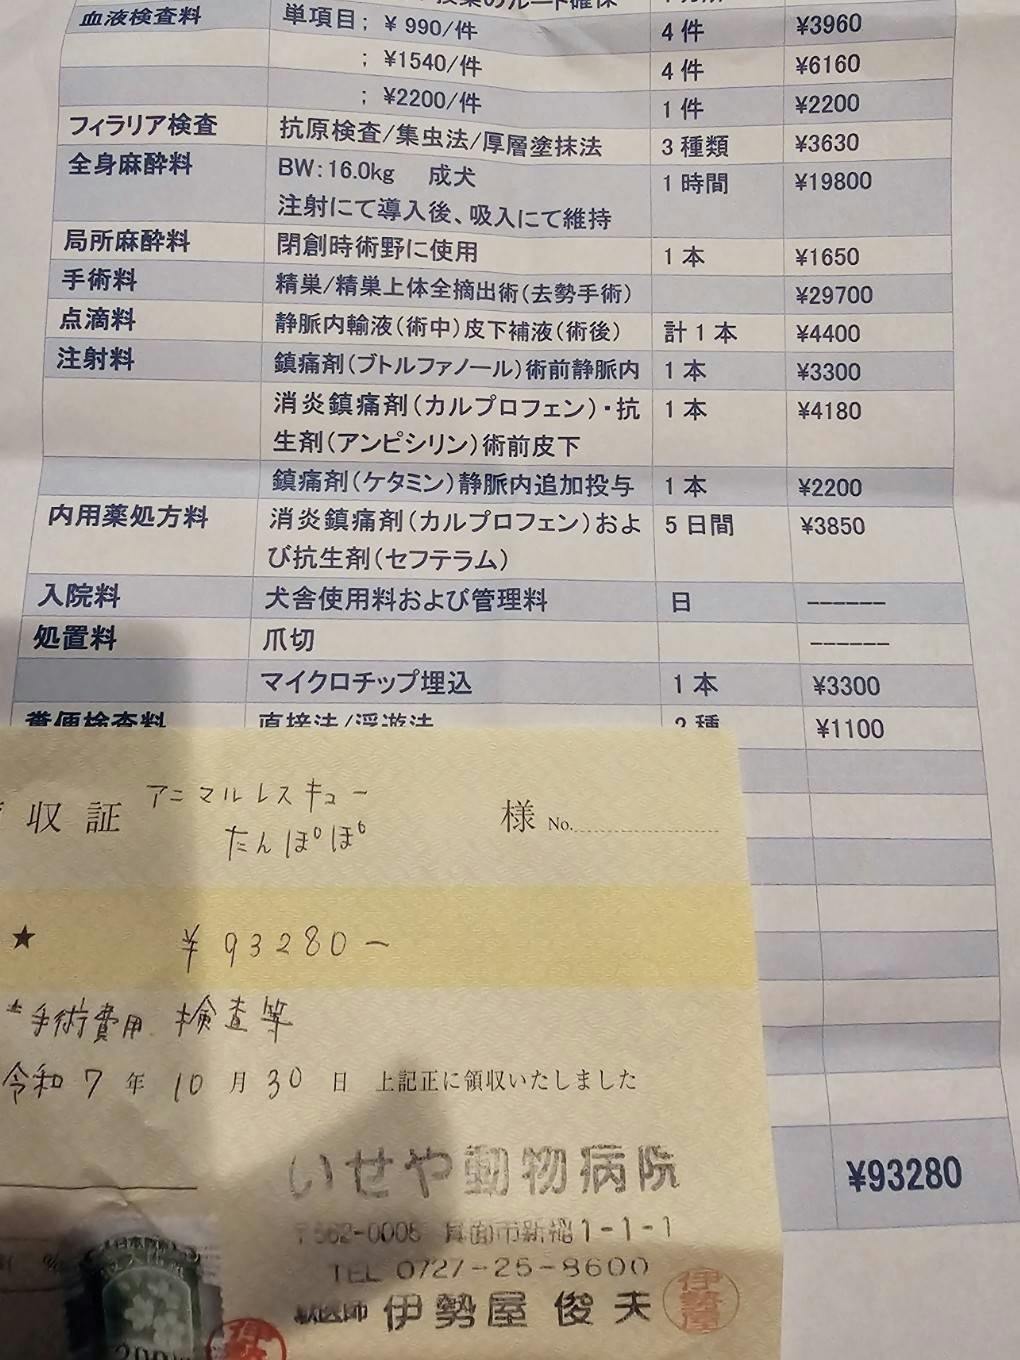 ルート確保
血液検査料 単項目; ¥990/件 4件 ¥3960
; ¥1540/件 4件 ¥6160
; ¥2200/件 1件 ¥2200
フィラリア検査 抗原検査/集虫法/厚層塗抹法 3種類 ¥3630
全身麻酔料 BW:16.0kg 成犬 1時間 ¥19800
注射にて導入後、吸入にて維持
局所麻酔料 閉創時術野に使用 1本 ¥1650
手術料 精巣/精巣上体全摘出術(去勢手術) ¥29700
点滴料 静脈内輸液(術中)皮下補液(術後) 計1本 ¥4400
注射料 鎮痛剤(ブトルファノール)術前静脈内 1本 ¥3300
消炎鎮痛剤(カルプロフェン)・抗 1本 ¥4180
生剤(アンピシリン)術前皮下
鎮痛剤(ケタミン)静脈内追加投与 1本 ¥2200
内用薬処方料 消炎鎮痛剤(カルプロフェン)およ 5日間 ¥3850
び抗生剤(セフテラム)
入院料 犬舎使用料および管理料 日 ------
処置料 爪切 ------
マイクロチップ埋込 1本 ¥3300
糞便検査料 直接法/浮遊法 2種 ¥1100
収証 アニマルレスキュー
たんぽぽ 様 No.
★ ¥93280-
手術費用 検査等
令和7年10月30日 上記正に領収いたしました
¥93280
いせや動物病院
〒562-0005 箕面市新稲1-1-1
TEL 0727-25-8600
獣医師 伊勢屋 俊夫
伊勢屋
200